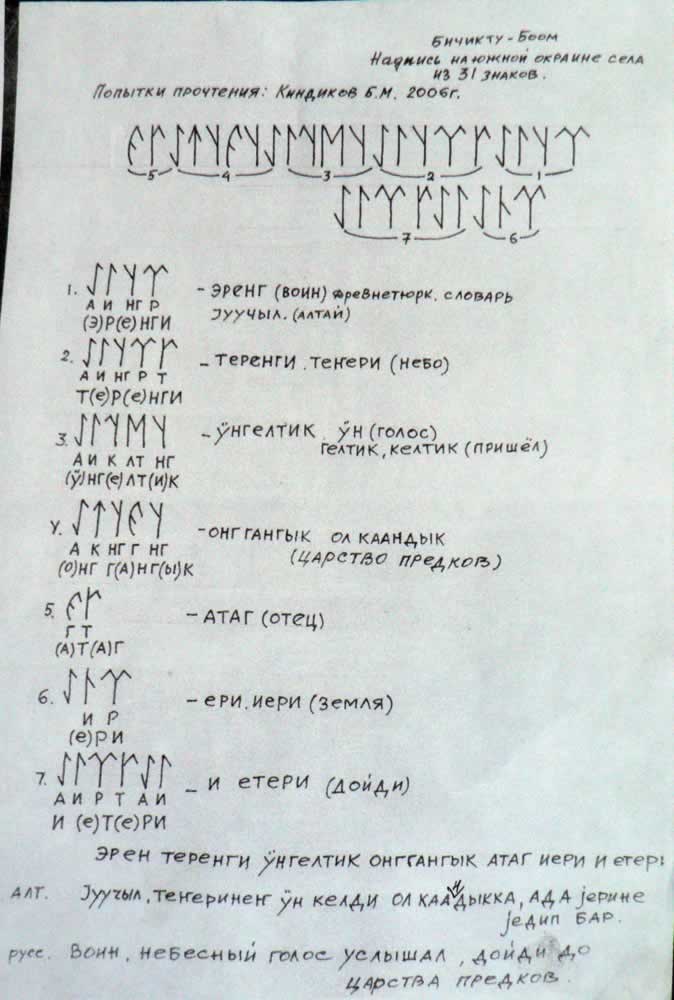 БИЧИКТУ-БООМ
НАДПИСЬ НА ЮЖНОЙ ОКРАИНЕ СЕЛА
ИЗ 31 ЗНАКОВ.
ПОПЫТКИ ПРОЧТЕНИЯ: КИНДИКОВ Б.М. 2006г.
5 4 3 2 1
7 6
1.
А И НГ Р
(Э)Р(е)НГИ
- ЭРЕНГ (ВОИН) ДРЕВНЕТЮРК. СЛОВАРЬ
JУУЧЫЛ. (АЛТАЙ)
2.
А И НГ Р Т
Т(е)Р(е)НГИ
- ТЕРЕНГИ. ТЕҤЕРИ (НЕБО)
3.
А И К ЛТ НГ
(ӱ)НГ(е)ЛТ(И)К
- ӰНГЕЛТИК ӰН (ГОЛОС)
ГЕЛТИК, КЕЛТИК (ПРИШЁЛ)
4.
А К НГ Г НГ
(О)НГ Г(А)НГ(Ы)К
- ОНГГАНГЫК ОЛ КААНДЫК
(ЦАРСТВО ПРЕДКОВ)
5.
Г Т
(А)Т(А)Г
- АТАГ (ОТЕЦ)
6.
И Р
(е)РИ
- ЕРИ. ИЕРИ (ЗЕМЛЯ)
7.
А И Р Т А И
И (е)Т(е)РИ
- И ЕТЕРИ (ДОЙДИ)
ЭРЕН ТЕРЕНГИ ӰНГЕЛТИК ОНГГАНГЫК АТАГ ИЕРИ И ЕТЕРИ
АЛТ. JУУЧЫЛ, ТЕҤЕРИНЕҤ ӰН КЕЛДИ ОЛ КААНДЫККА, АДА JЕРИНЕ
JЕДИП БАР.
РУСС. ВОИН, НЕБЕСНЫЙ ГОЛОС УСЛЫШАЛ, ДОЙДИ ДО
ЦАРСТВА ПРЕДКОВ.